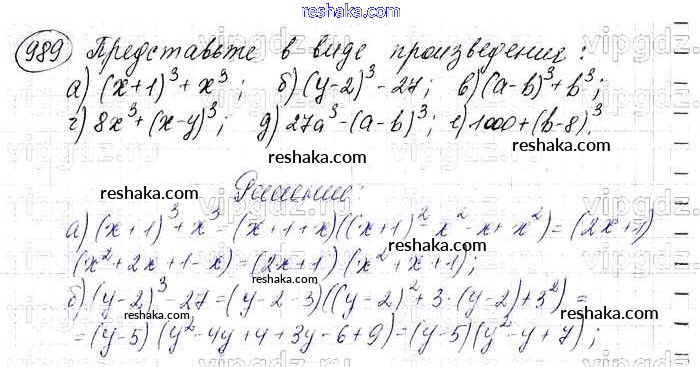 reshaka.com
989 Представьте в виде произведения:
а) (x+1)³+x³; б) (y-2)³-27; в) (a-b)³+b³;
г) 8x³+(x-y)³; д) 27a³-(a-b)³; е) 1000+(b-8)³.
reshaka.com
reshaka.com
Решение:
а) (x+1)³+x³=(x+1+x)((x+1)²-x²-x+x²)=(2x+1)
reshaka.com
(x²+2x+1-x)=(2x+1)(x²+x+1);
б) (y-2)³-27=(y-2-3)((y-2)²+3·(y-2)+3²)=
=(y-5)(y²-4y+4+3y-6+9)=(y-5)(y²-y+7);
reshaka.com